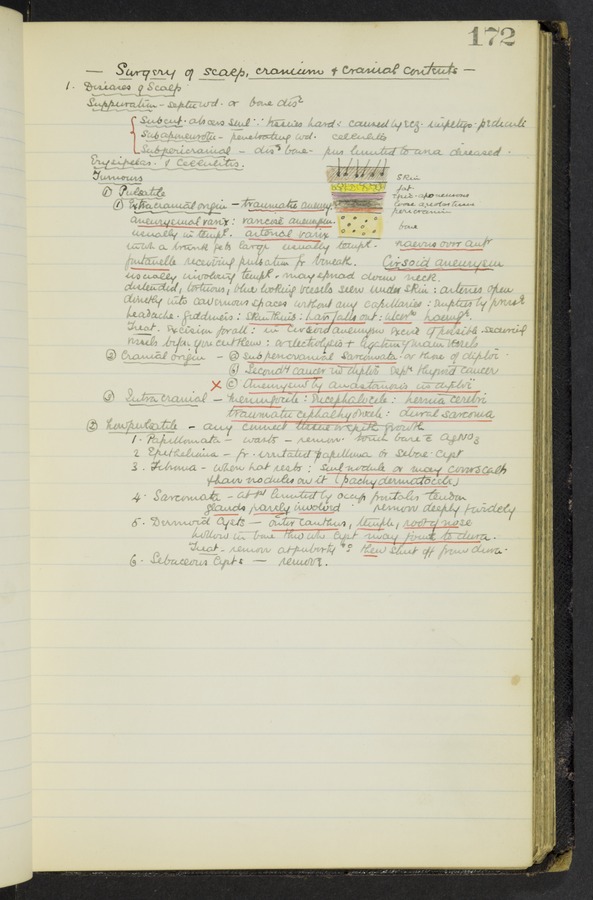 172
— Surgery of scalp, cranium & cranial contents —
1. Diseases of Scalp
Suppuration - septic wd. or bone dis^e
Subcut. abscess small ∵ tissues hard: caused by ecz. impetigo. pediculi
Subaponeurotic - penetrating wd. cellulitis
Subpericranial - dis^d bone - pus limited to area diseased.
Erysipelas. & Cellulitis.
Tumours
Skin
fat
epic. aponeurosis
loose areolar tissue
pericranium
bone
① Pulsatile
① Extracranial origin - traumatic aneurysm
aneurysmal varix: varicose aneurysm
usually in templ. arterial varix
which a trunk gets large usually templ. naevus over ant^r
fontanelle receiving pulsation fr beneath. Cirsoid aneurysm
usually involving templ. may spread down neck.
distended, tortuous, blue looking vessels seen under skin: arteries open
directly into cavernous spaces without any capillaries: empties by press^e
headache. giddiness: skin thins: hair falls out: ulcer^s haem^ge.
Treat. Excision for all: in cirsoid aneurysm excise if possible securing
vessels before you cut them: or electrolysis & ligature main vessels
② Cranial origin - ⓐ subpericranial sarcomata or those of diploe
ⓑ Second^y cancer in diploe esp^y thyroid cancer
× ⓒ Aneurysm by anastomosis in diploe
③ Intra cranial - meningocele: encephalocele: hernia cerebri
traumatic cephalhydrocele: dural sarcoma
② Nonpulsatile - any connect tissue or epith growth
1. Papillomata - warts - remove. touch base c̄ AgNO3
2 Epithelioma - fr irritated papilloma or sebac. cyst
3. Fibroma - when hat rests: small nodule or may cover scalp
& hair nodules on it (pachydermatocele)
4. Sarcomata - at 1st limited by occip frontalis tendon
glands rarely involved remove deeply & widely
5. Dermoid cysts - outer canthus, temple, root of nose
hollow in bone thro' wh cyst may point to dura.
Treat - remove at puberty ∵ then shut off from dura.
6. Sebaceous cysts — remove.